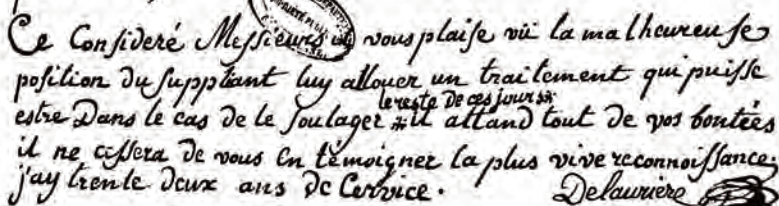 Ce Consideré Messieurs il vous plaise vü la malheureuse
position du suppliant luy allouer un traitement qui puisse
le reste de ces jours
estre Dans le cas de le soulager * il attand tout de vos bontées
il ne cessera de vous En témoigner la plus vive reconnoissance,
j'ay trente deux ans de Cervice.
Delaurière